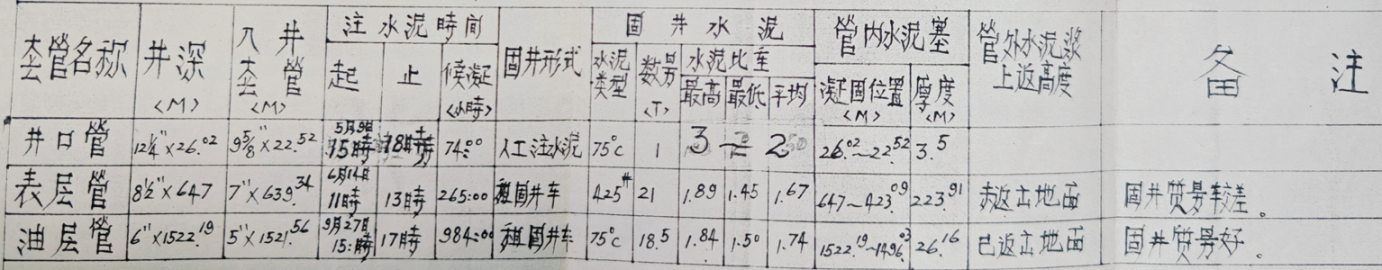 套管名称 井深 <M> 入井套管 <M> 注水泥時间 起 止 候凝 <小時> 固井形式 固井水泥 水泥类型 数另 <T> 水泥比重 最高 最低 平均 管内水泥塞 凝固位置 <M> 厚度 <M> 管外水泥浆上返高度 备注
井口管 12¼"×26.02 9⅝"×22.52 5月9日 15時 18時 74:00 人工注水泥 75°c 1 3 = 2 26.02~22.52 3.5
表层管 8½"×647 7"×639.34 6月14日 11時 13時 265:00 租固井车 425# 21 1.89 1.45 1.67 647~423.09 223.91 未返出地面 固井质另较差。
油层管 6"×1522.19 5"×1521.56 9月27日 15:時 17時 984:00 租固井车 75°c 18.5 1.84 1.50 1.74 1522.19~1496.03 26.16 已返出地面 固井质另好。